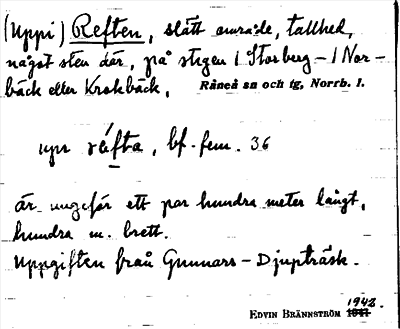 (Uppi) Reften, slätt område, tallhed,
något sten där, på stigen i Storberg – i Nor-
bäck eller Krokbäck. Råneå sn och tg, Norrb. l.
upi räfta, bf. fem. 36
är ungefär ett par hundra meter långt,
hundra m. brett.
Uppgiften från Gunnars – Djupträsk.
1942.
EDVIN BRÄNNSTRÖM 1941